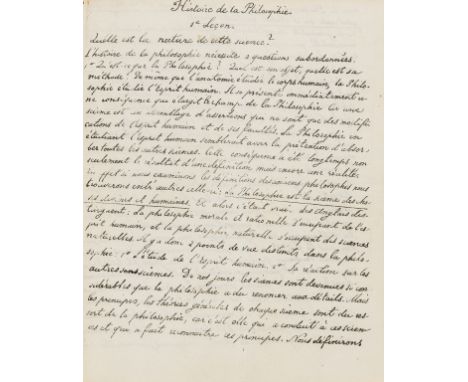 Histoire de la Philosophie.
1e Leçon.
Quelle est la nature de cette science?
L'histoire de la philosophie nécessite 2 questions subordonnées.
1° Qu'est ce que la Philosophie? Quel est son objet, quelle est sa
méthode? De même que l'anatomie étudie le corps humain, la Philo-
sophie étudie l'esprit humain. Il se présente immédiatement u-
ne conséquence qui élargit le champ de la Philosophie. Car une
science est un assemblage d'assertions qui ne sont que des modifi-
cations de l'esprit humain et de ses facultés. La Philosophie en
étudiant l'esprit humain semblerait avoir la prétention d'absor-
ber toutes les autres sciences. Cette conséquence a été longtemps non
seulement le résultat d'une définition mais encore une réalité.
En effet si nous examinons les définitions des anciens philosophes nous
trouverons entre autres celle-ci: La Philosophie est la science des cho-
ses divines et humaines. Et alors c'était vrai. Les Anglais dis-
tinguent: La philosophie morale et rationnelle s'occupant de l'es-
prit humain, et la philosophie naturelle s'occupant des sciences
naturelles. Il y a donc 2 points de vue distincts dans la philo-
sophie: 1° L'étude de l'esprit humain, 2° Sa réaction sur les
autres sciences. De nos jours les sciences sont devenues si con-
sidérables que la philosophie a du renoncer aux détails. Mais
les principes, les théories générales de chaque science sont du res-
sort de la philosophie, car c'est elle qui a conduit à ces scien-
ces et qui a fait reconnaître ces principes. Nous définirons